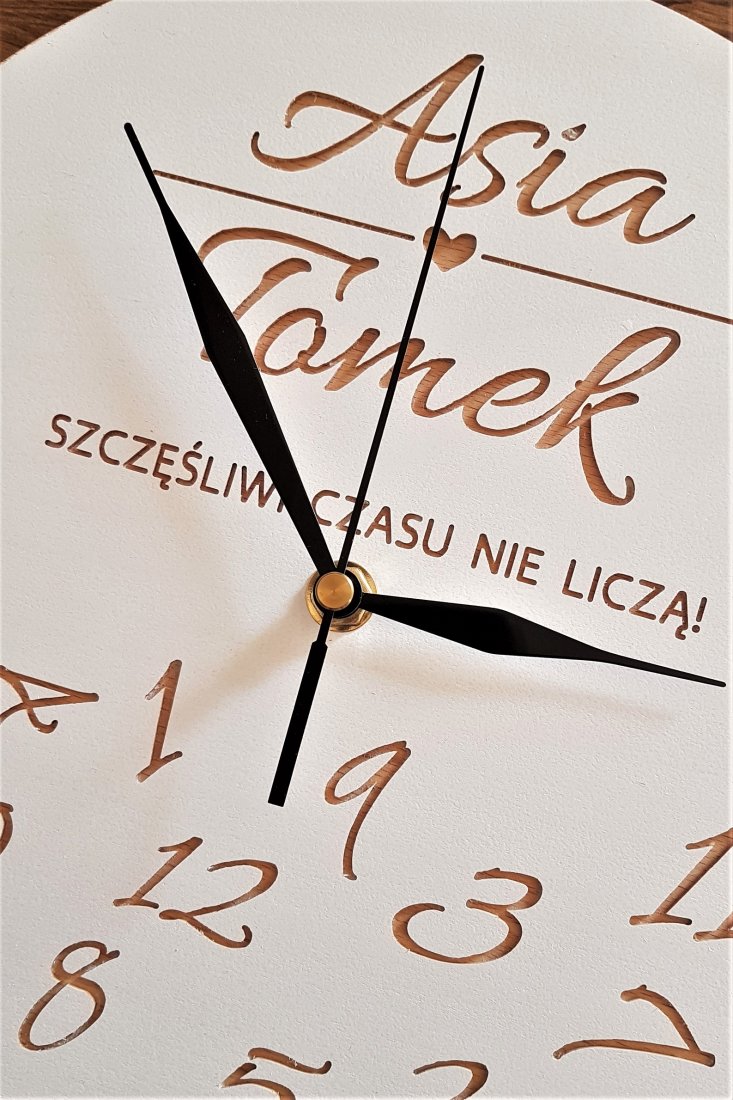 Asia
Tomek
SZCZĘŚLIWI CZASU NIE LICZĄ!
1
9
12
3
11
8
7
5
2